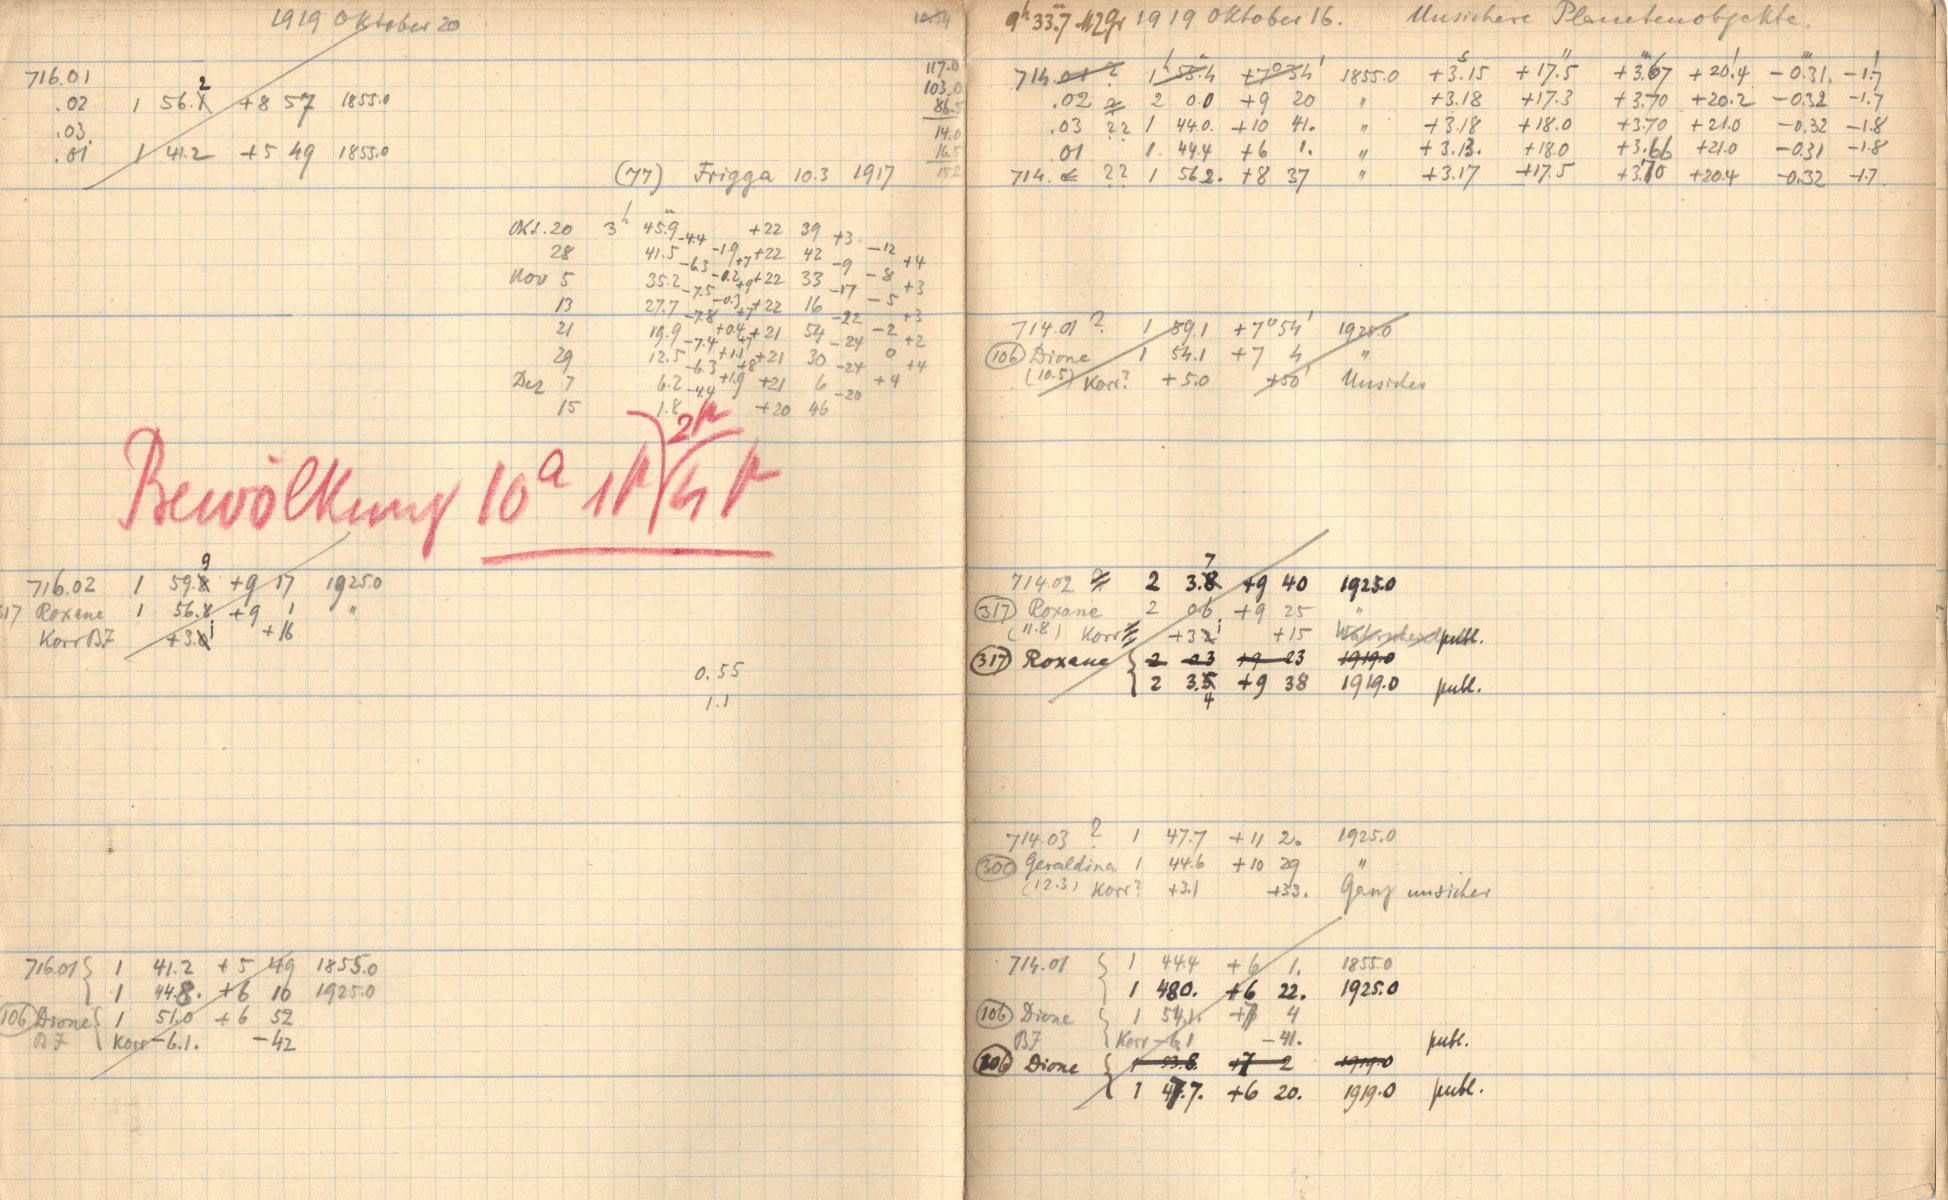 1919 Oktober 20
716.01
.02 1 56.2 +8 57 1855.0
.03
.01 1 41.2 +5 49 1855.0
117.0
103.0
86.5
14.0
16.5
152
(77) Frigga 10.3 1917
Okt. 20 3h 45.9m +22 39
-4.4 +3
28 41.5 -1.9 +22 42 -12
-6.3 +7 -9 +4
Nov 5 35.2 -0.2 +22 33 -8
-7.5 +9 -17 +3
13 27.7 -0.3 +22 16 -5
-7.8 +7 -22 +3
21 19.9 +0.4 +21 54 -2
-7.4 +7 -24 +2
29 12.5 +1.1 +21 30 0
-6.3 +8 -24 +4
Dez 7 6.2 +1.9 +21 6 +4
-4.4 -20
15 1.8 +20 46
Bewölkung 10a 1p 2p 4p
716.02 1 59.9 +9 17 1925.0
317 Roxane 1 56.8 +9 1 "
Korr BJ +3.1 +16
0.55
1.1
716.01 { 1 41.2 +5 49 1855.0
1 44.8. +6 10 1925.0
(106) Dione { 1 51.0 +6 52
BJ Korr -6.1. -42
9h 33.m7 MZGr 1919 Oktober 16. Unsichere Planetenobjekte.
714.01 ? 1h 55.m4 +7° 34' 1855.0 +3.s15 +17."5 +3.67 +20.'4 -0.31. -1.'7
.02 2 0.0 +9 20 " +3.18 +17.3 +3.70 +20.2 -0.32 -1.7
.03 ?? 1 44.0. +10 41. " +3.18 +18.0 +3.70 +21.0 -0.32 -1.8
01 1. 44.4 +6 1. " +3.13. +18.0 +3.66 +21.0 -0.31 -1.8
714. ?? 1 56 2. +8 37 " +3.17 +17.5 +3.70 +20.4 -0.32 -1.7
714.01 ? 1 59.1 +7° 54' 1925.0
(106) Dione 1 54.1 +7 4 "
(10.5) Korr? +5.0 +50' Unsicher
714.02 2 3.7 +9 40 1925.0
(317) Roxane 2 0.6 +9 25 "
(11.8) Korr +3.1 +15 publ.
(317) Roxane { 2 0.3 +9 23 1919.0
2 3.4 +9 38 1919.0 publ.
714.03 ? 1 47.7 +11 2. 1925.0
(300) Geraldina 1 44.6 +10 29 "
(12.3) Korr? +3.1 +33. Ganz unsicher
714.01 { 1 44.4 +6 1. 1855.0
1 480. +6 22. 1925.0
(106) Dione { 1 54.1. +7 4
BJ Korr -6.1 -41. publ.
(106) Dione { 1 53.8 +7 2 1919.0
1 47.7. +6 20. 1919.0 publ.